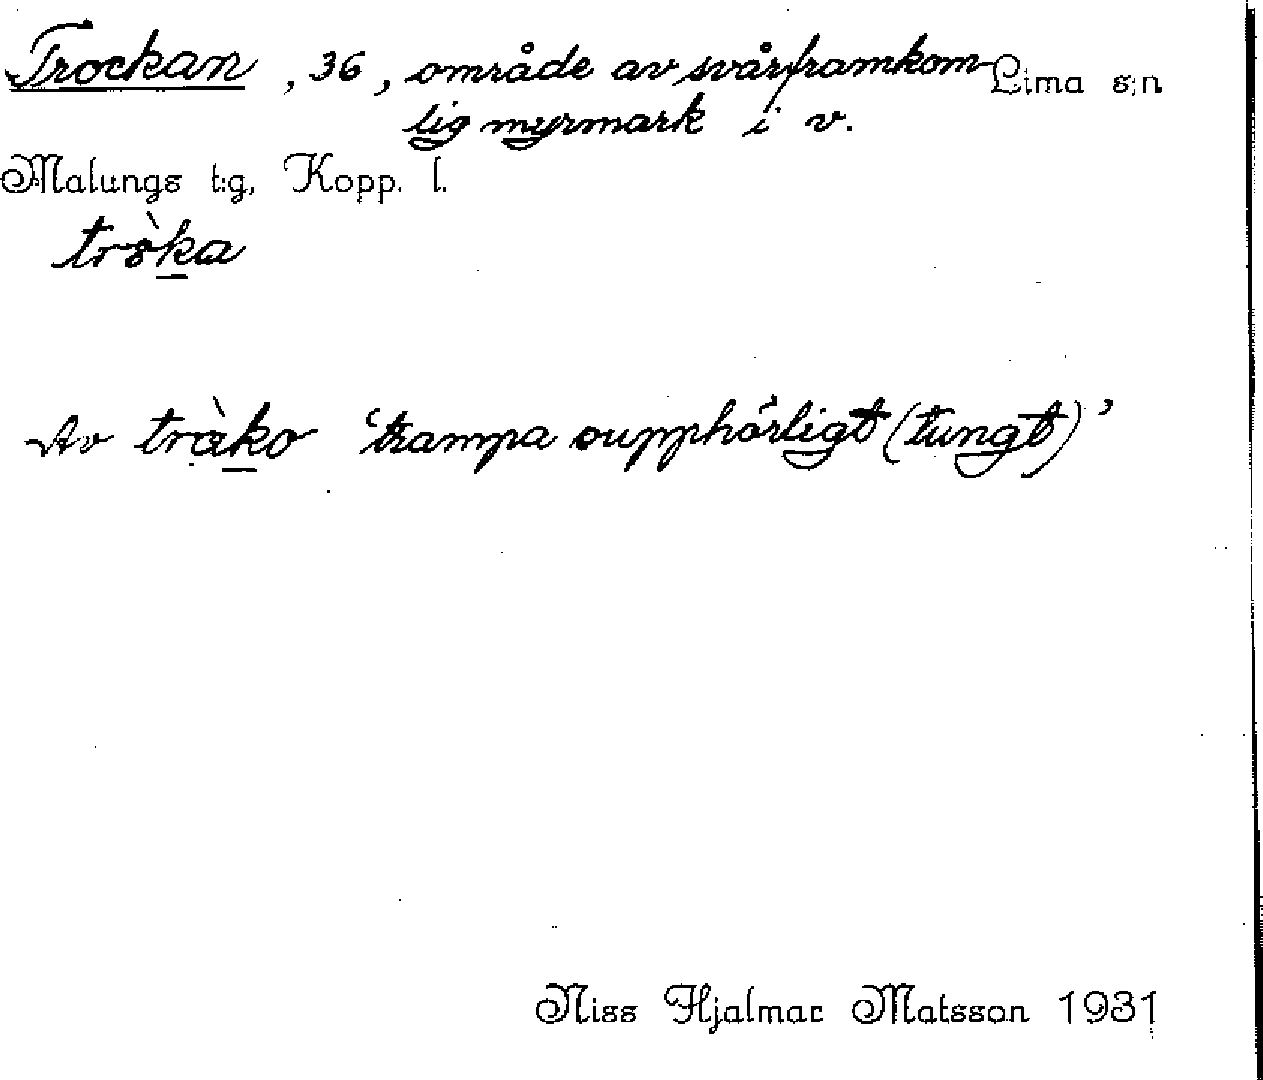 Trockan , 36 , område av svårframkom- Lima s:n
lig myrmark i v.
Malungs t:g, Kopp. l.
tròka
Av tràko ‘trampa oupphörligt (tungt)’
Niss Hjalmar Matsson 1931